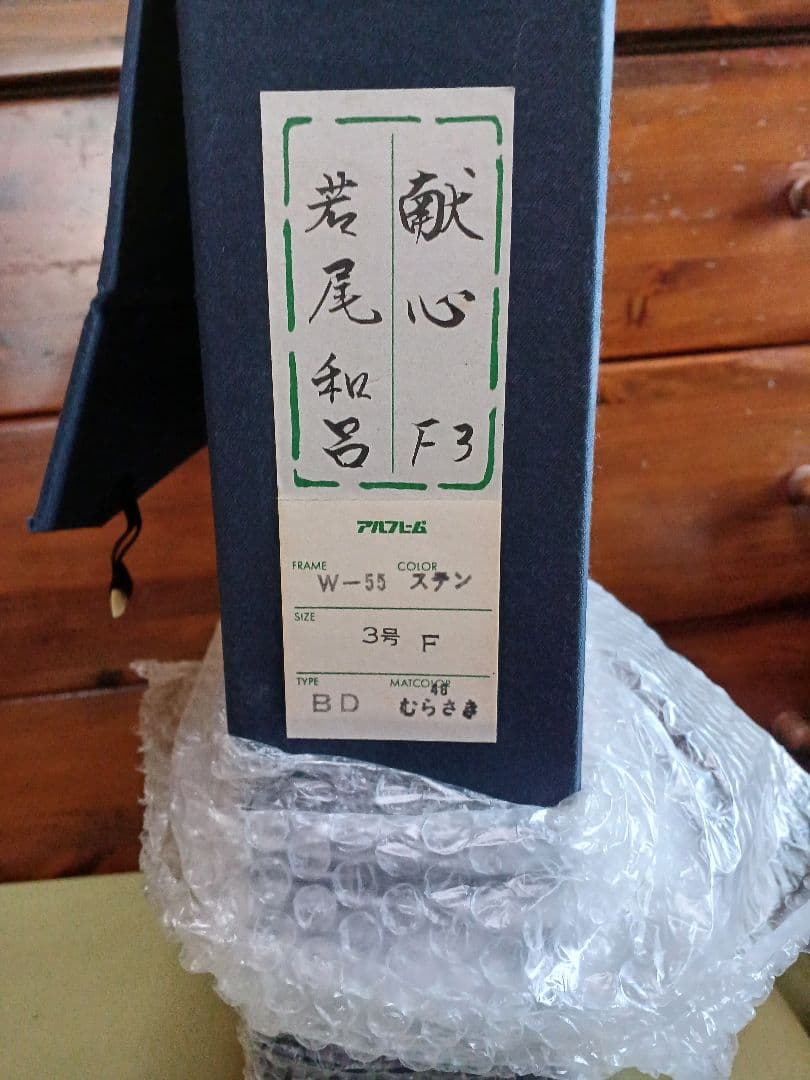 献心 F3
若尾和呂
アルフレーム
FRAME W-55 COLOR ステン
SIZE 3号 F
TYPE BD MATCOLOR 48 むらさき